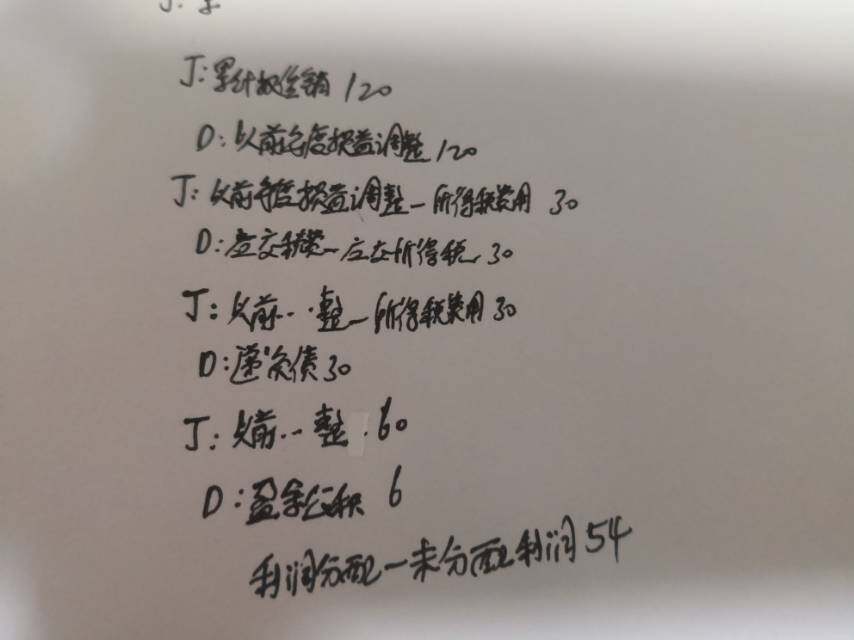 J:累计摊销 120
D:以前年度损益调整 120
J:以前年度损益调整—所得税费用 30
D:应交税费—应交所得税 30
J:以前··整—所得税费用 30
D:递负债 30
J:以前··整 60
D:盈余公积 6
利润分配—未分配利润 54